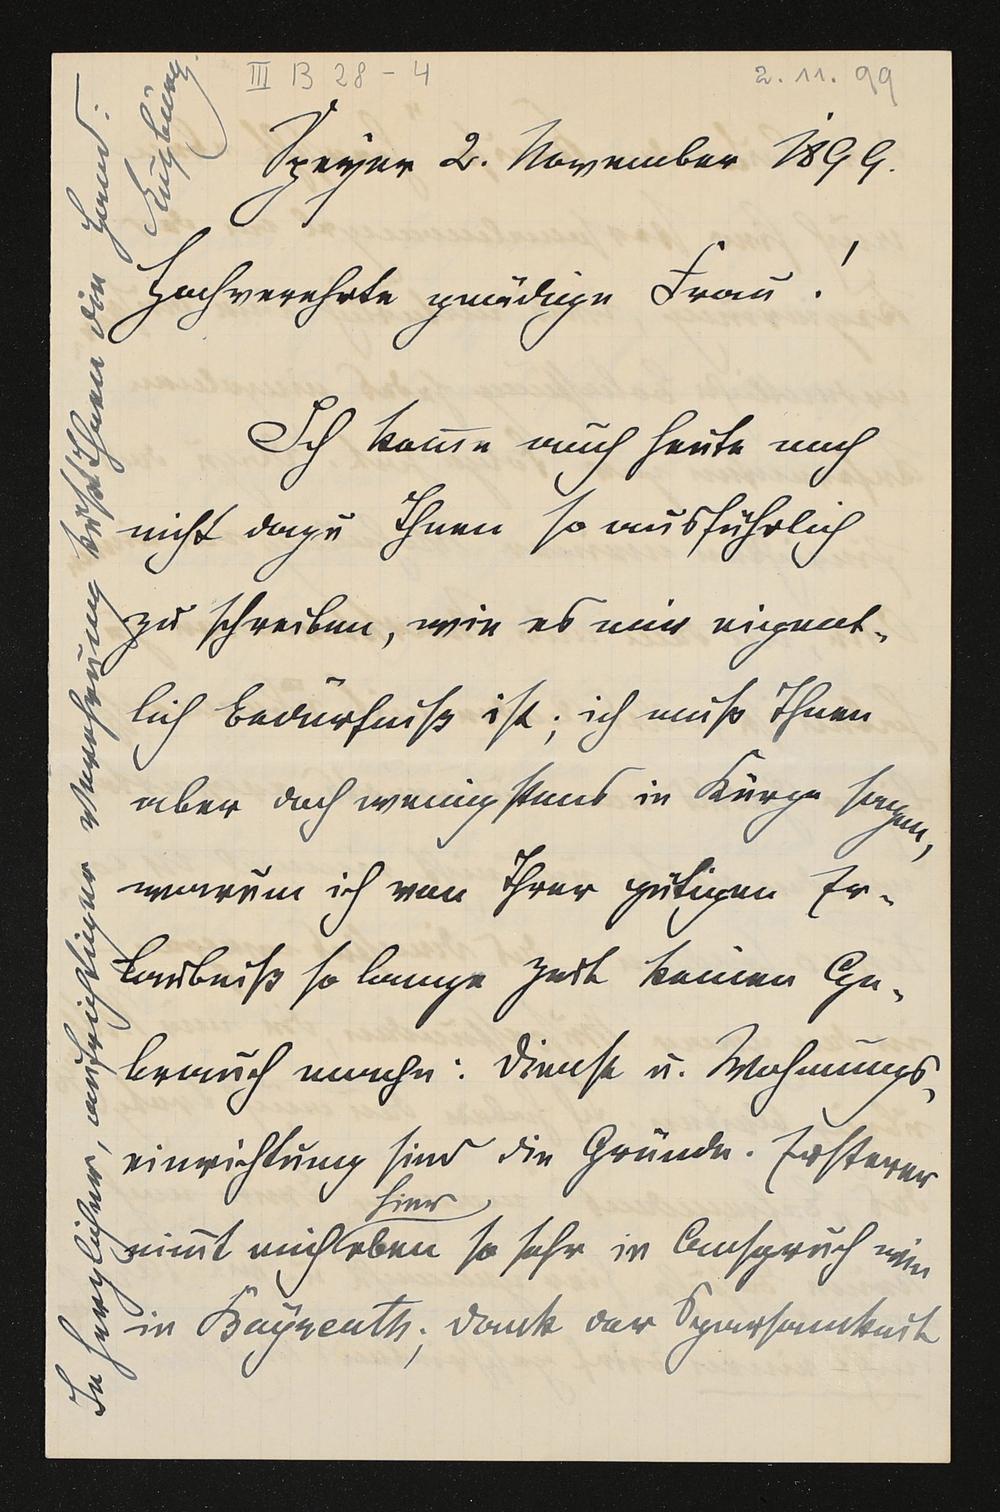 III B 28-4
2.11.99
Speyer 2. November 1899.
Hochverehrte gnädige Frau!
Ich kom̅e auch heute noch
nicht dazu Ihnen so ausführlich
zu schreiben, wie es mir eigent-
lich Bedürfniß ist; ich muß Ihnen
aber doch wenigstens in Kürze sagen,
warum ich von Ihrer gütigen Er-
laubniß so lange Zeit keinen Ge-
brauch mache: Dienst u. Wohnungs-
einrichtung sind die Gründe. Ersterer
nim̅t mich hier eben so sehr in Anspruch wie
in Bayreuth; dank der Sparsamkeit
In herzlicher, aufrichtiger Verehrung küßt Ihnen die Hand: